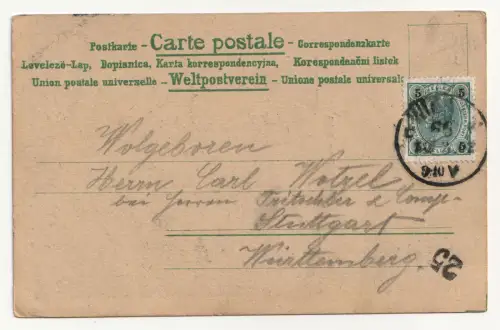 Postkarte – Carte postale – Correspondenzkarte
Levelezö-Lap, Dopisnica, Karta korrespondencyjna, Korespondenční listek
Union postale universelle – Weltpostverein – Unione postale universale
5 5
Wolgeboren
Herrn Carl Wotzel
bei Herren Fritschler & Comp.
Stuttgart
Württemberg.
25